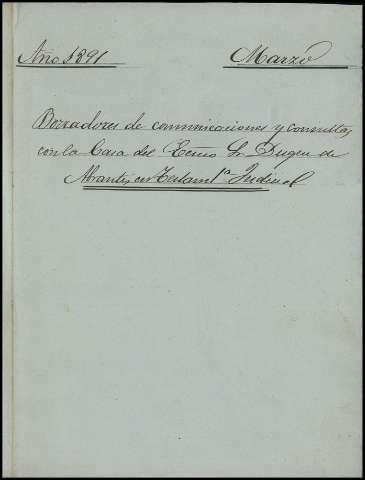 Año 1891 Marzo
Borradores de comunicaciones y consultas
con la Casa del Excmo Sr Duque de
Abrantes en Testamtª Judicial